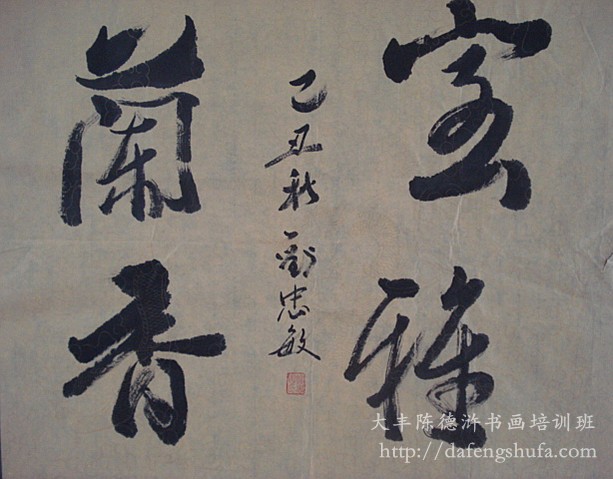 室雅
蘭香
己丑秋劉忠敏
大丰陈德浒书画培训班
http://dafengshufa.com